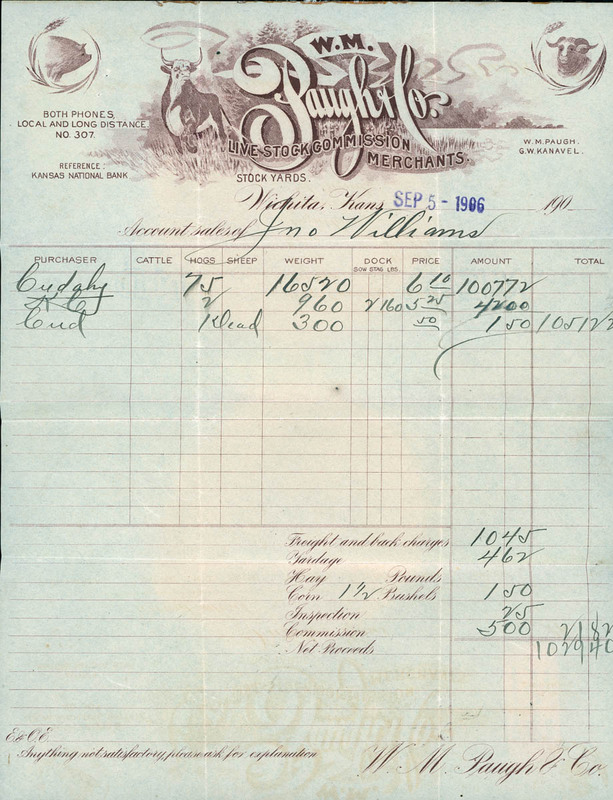 W.M.
Paugh & Co.
LIVE STOCK COMMISSION
MERCHANTS.
BOTH PHONES,
LOCAL AND LONG DISTANCE
NO. 307.
REFERENCE:
KANSAS NATIONAL BANK
W.M. PAUGH.
G.W. KANAVEL.
STOCK YARDS.
Wichita, Kans. SEP 5 - 1906 190
Account sales of Jno Williams
PURCHASER CATTLE HOGS SHEEP WEIGHT DOCK SOW STAG LBS. PRICE AMOUNT TOTAL
Cudahy 75 16520 6 10 1007 72
2 960 2 160 5 25 42 00
Cud 1 Dead 300 50 1 50 1051 22
Freight and back charges 10 45
Yardage 4 62
Hay Pounds
Corn 1 1/2 Bushels 1 50
Inspection 25
Commission 5 00 21 82
Net Proceeds 1029 40
E & O.E.
Anything not satisfactory, please ask for explanation W. M. Paugh & Co.